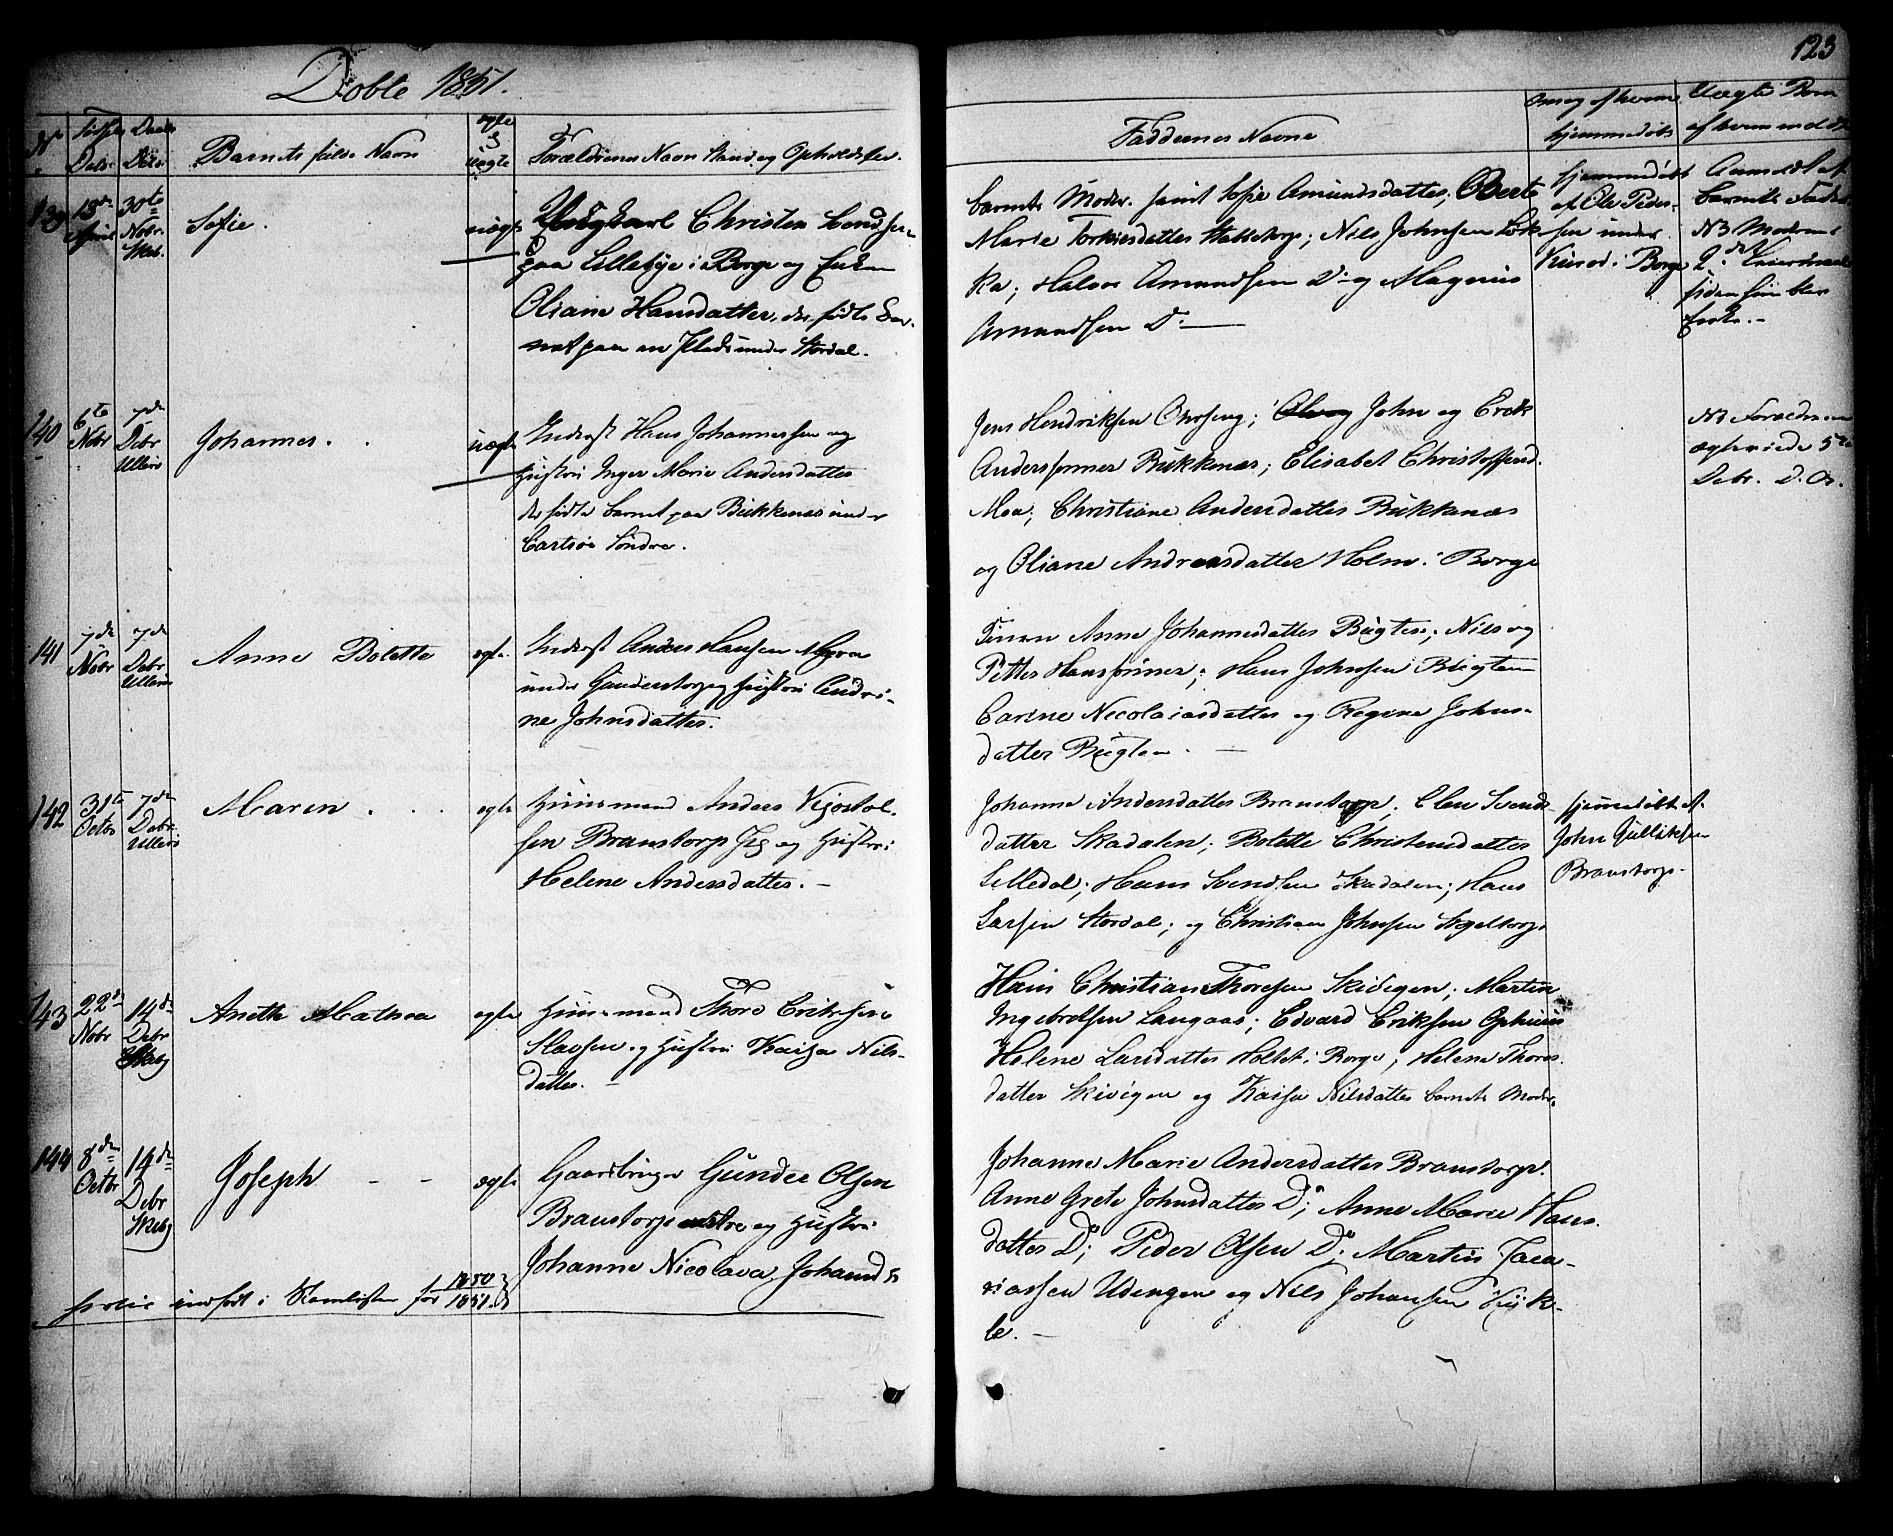 Døbte 1851.
123
No
Fødsels Dato
Daabs Dato
Barnets fulde Navn
ægte eller uægte
Forældrenes Navn Stand og Opholdsted.
Faddernes Navne
Om og af hvem hjemmedøbt
Uægte Børn af hvem anmeldt
139
13de April
30te Novbr. Skeb.
Sofie.
uægte
Ungkarl Christen
paa Lillebye i Borge og Enken
Oliane Hansdatter, der fødte Bar-
net paa en Plads under Stordal.
Barnets Moder. samt Sofie Amundsdatter,
Marie Torkildsdatter Nils Johnsen Løk-
ka; Halvor Amundsen Do og Magnus
Amundsen Do.
hjemmedøbt
af Ole Peder-
sen under
i Borge
Anmeldt af
Barnets Fader
NB Moderens
2det Leiermaal
siden hun blev
Enke.-
140
6te Novbr
7de Debr Ulleröe
Johannes.
uægte
Inderst Hans Johannessen og
Hustru Inger Marie Andersdatter
der fødte Barnet paa Bukkenæs under
søndre.
Jens Hendriksen John og Erik
Anderssønner Bukkenæs; Elisabet Christoffersd.
Moa; Christiane Andersdatter Bukkenæs
og Oliane Andreasdatter Holm i Borge
NB Forældrene
ægteviede 5te
Debr. D. A.
141
7de Novbr
7de Debr Ulleröe
Anne Bolette
ægte.
Inderst Anders Hansen Myra
under og Hustru Andri-
ne Johnsdatter.
Anne Johannesdatter Bugten; Nils og
Petter Hanssønner; Hans Johnsen Bugten
Carine Nicolaiasdatter og Regine Johns-
datter Bugten.
142
31te Octbr
7de Debr. Ulleröe
Maren
ægte
Huusmand Anders
sen Branstorp og Hustru
Helene Andersdatter.-
Johanne Andersdatter Branstorp, Elen Svends-
datter Skadalen; Bolette Christensdatter
Lilledal; Hans Svendsen Skadalen; Hans
Larsen Stordal; og Christian Johnsen
hjemmedøbt af
John Gulliksen
Branstorp.
143
22de Novbr
14de Debr Skeb
Anette Mathea
ægte
Huusmand Thore Eriksen
og Hustru Kaisa Nils-
datter.
Hans Christian Thoresen Skivigen; Martin
Ingebretsen Langaas; Edvard Eriksen Ophuus
Helene Larsdatter Holtet i Borge; Helene Thores-
datter Skivigen og Kaisa Nilsdatter Barnets Moder.
144
8de Octbr
14de Debr Skeb
Joseph
ægte
Gaardbruger Gunder Olsen
Branstorp østre og Hustru
Johanne Nicolava Johansdr
Johanne Marie Andersdatter Branstorp.
Anne Grete Johnsdatter Do; Anne Marie Hans-
datter Do; Peder Olsen Do. Martin Zaca-
riassen Udengen og Nils Johansen Kyk-
le.
indført i for 1850/1851.